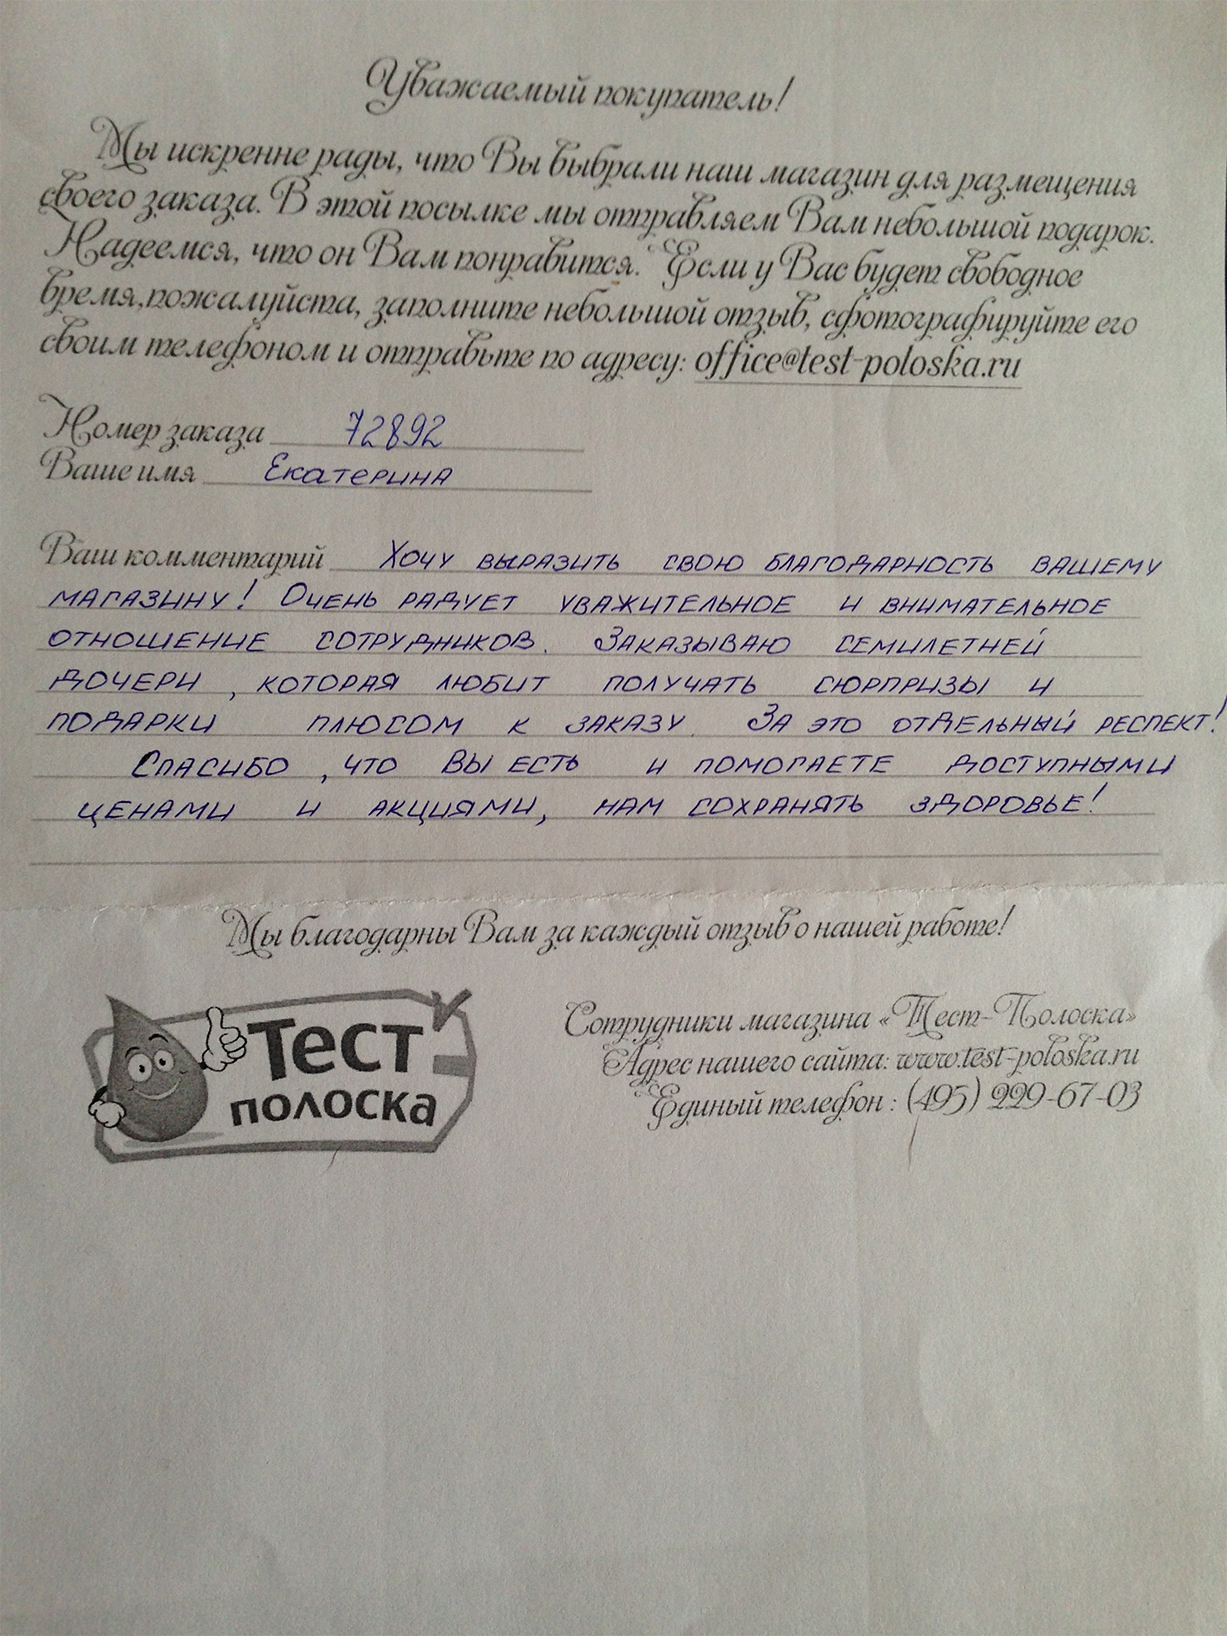 Уважаемый покупатель!
Мы искренне рады, что Вы выбрали наш магазин для размещения
своего заказа. В этой посылке мы отправляем Вам небольшой подарок.
Надеемся, что он Вам понравится. Если у Вас будет свободное
время,пожалуйста, заполните небольшой отзыв, сфотографируйте его
своим телефоном и отправьте по адресу: office@test-poloska.ru
Номер заказа 72892
Ваше имя Екатерина
Ваш комментарий Хочу выразить свою благодарность вашему
магазину! Очень радует уважительное и внимательное
отношение сотрудников. Заказываю семилетней
дочери, которая любит получать сюрпризы и
подарки плюсом к заказу. За это отдельный респект!
Спасибо, что Вы есть и помогаете доступными
ценами и акциями, нам сохранять здоровье!
Мы благодарны Вам за каждый отзыв о нашей работе!
Тест
полоска
Сотрудники магазина «Тест-Полоска»
Адрес нашего сайта: www.test-poloska.ru
Единый телефон : (495) 229-67-03